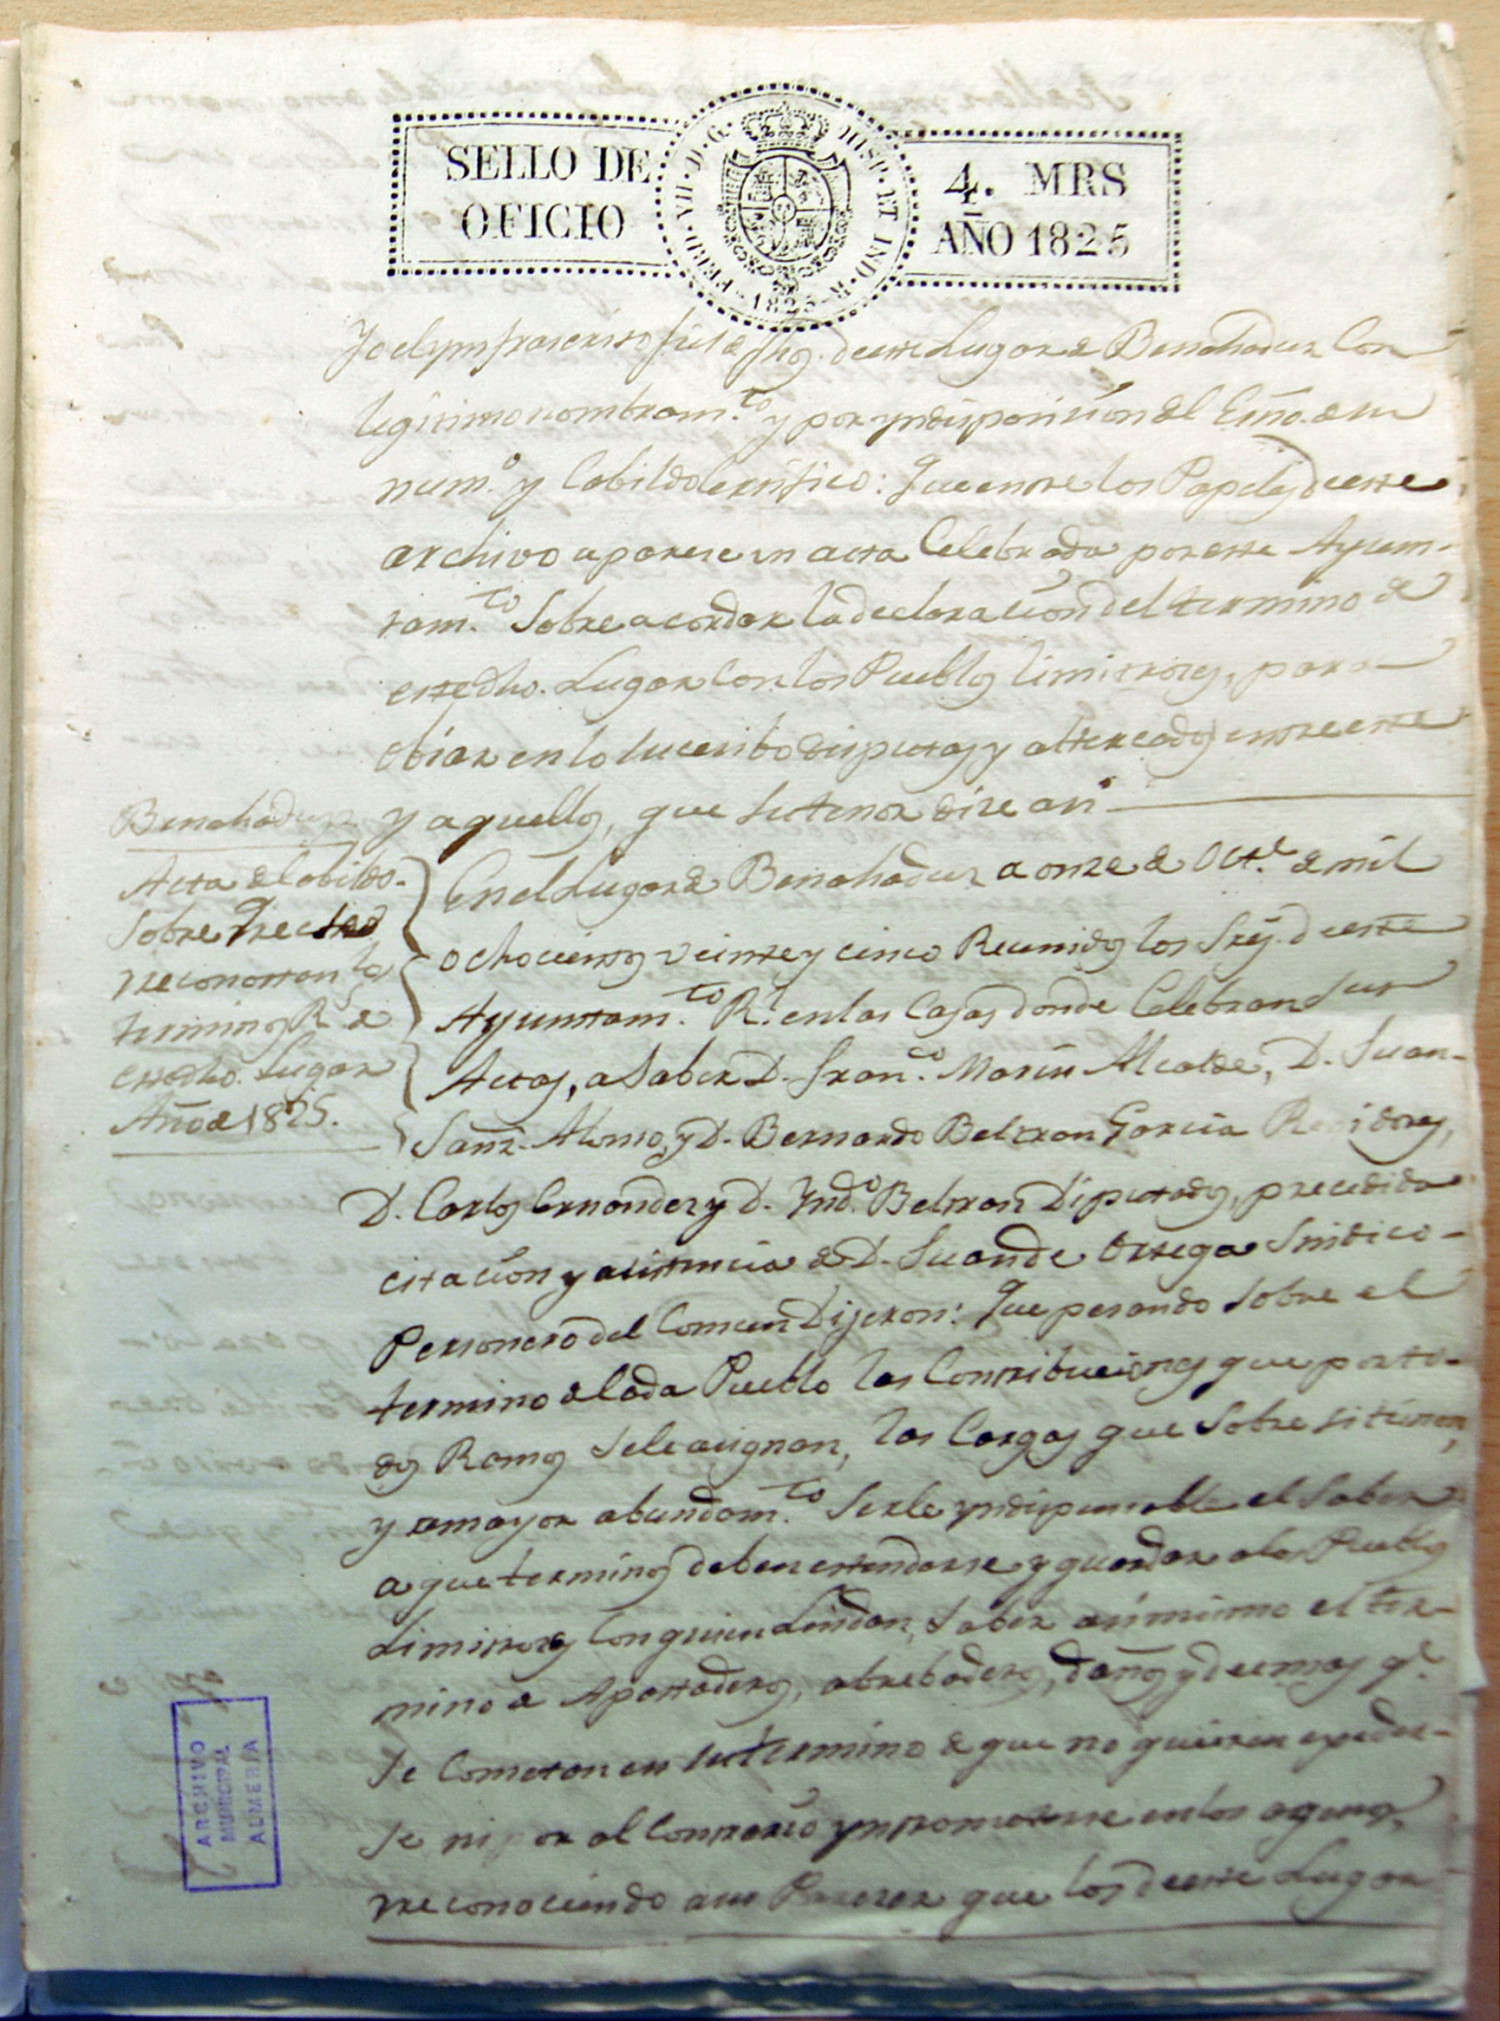 SELLO DE
OFICIO
FERD · VII · D · G · HISP · ET IND · R
1825
4. MRS
AÑO 1825
Yo el ynfrascrito fiel de fhos. de este Lugar de Benahadux Con
legitimo nombram.to y por yndisposision del Esño. de su
num.o y Cabildo Certifico: Que entre los Papeles de este
archivo aparese un acta Celebrada por este Ayun-
tam.to Sobre acordar la declaracion del termino de
este dho. Lugar con los Pueblos limitrofes, para
obiar en lo sucesibo disputas y altercados entre este
y aquellos, que su tenor dise asi
Benahadux
Acta de Cabildo.
Sobre que
reconoscan los
terminos R.s de
este dho. Lugar
Año de 1825.
En el Lugar de Benahadux a onze de Oct.e de mil
ochocientos veinte y cinco Reunidos los Sres. de este
Ayuntam.to R.l en las Casas donde Celebran sus
Actas, a Saber D. Fran.co Marin Alcalde, D. Juan
Sanz. Alonso, y D. Bernardo Beltran Garcia Regidores,
D. Carlos Ernandez y D. Ynd.o Beltran Diputados, precedida
citacion y asistencia de D. Juan de Ortega Sindico
Personero del Comun Dijeron: Que pesando sobre el
termino de Cada Pueblo las Contribuciones que por to-
dos Ramos Sele asignan, las Cargas que Sobre si tienen,
y a mayor abundam.to Serle yndispensable el Saber
a que terminos deben estenderse y guardar a los Pueblos
Limitrofes Con quien Lindan, Saber asi mismo el ter-
mino de Apostaderos, abrebaderos, daños y demas q.e
se Cometan en su termino de que no quieren exeder-
se ni por el Contrario ynprometerse en los agenos,
reconociendo a su Pareser que los de este Lugar
ARCHIVO
MUNICIPAL
ALMERIA